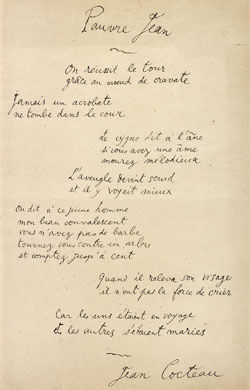 Pauvre Jean
On réussit le tour
grâce au nœud de cravate
Jamais un acrobate
ne tombe dans la cour
Le cygne dit à l'âne
si vous avez une âme
mourez mélodieux
L'aveugle devint sourd
et il y voyait mieux
On dit à ce jeune homme
mon beau convalescent
vous n'avez pas de barbe
tournez vous contre un arbre
et comptez jusqu'à cent
Quand il releva son visage
il n'eut pas la force de crier
Car les uns étaient en voyage
Et les autres s'étaient mariés
Jean Cocteau